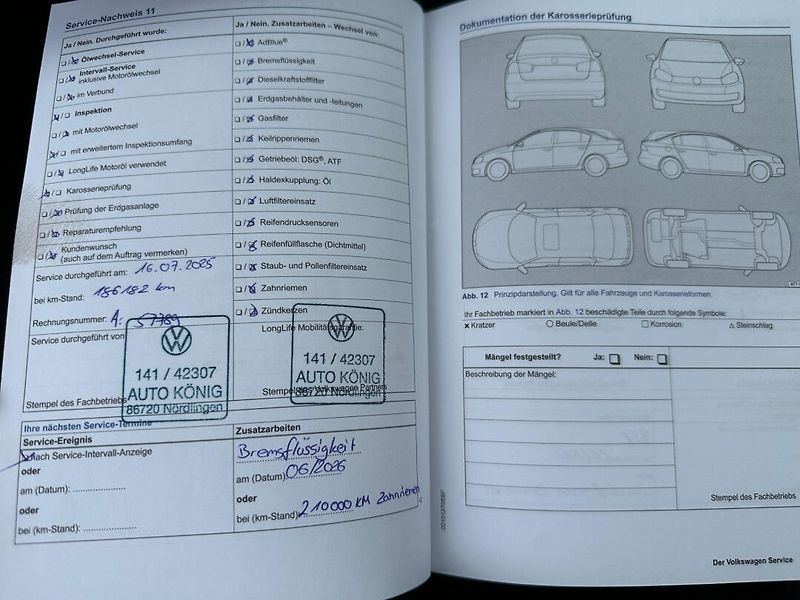 Service-Nachweis 11
Ja / Nein. Durchgeführt wurde:
Ölwechsel-Service
Intervall-Service
inklusive Motorölwechsel
im Verbund
Inspektion
mit Motorölwechsel
mit erweitertem Inspektionsumfang
LongLife Motoröl verwendet
Karosserieprüfung
Prüfung der Erdgasanlage
Reparaturempfehlung
Kundenwunsch
(auch auf dem Auftrag vermerken)
Service durchgeführt am: 16.07.2025
bei km-Stand: 186182 km
Rechnungsnummer: A: 57789
Service durchgeführt von
141 / 42307
AUTO KÖNIG
86720 Nördlingen
Stempel des Fachbetriebs
Ja / Nein. Zusatzarbeiten – Wechsel von:
AdBlue®
Bremsflüssigkeit
Dieselkraftstofffilter
Erdgasbehälter und -leitungen
Gasfilter
Keilrippenriemen
Getriebeöl: DSG®, ATF
Haldexkupplung: Öl
Luftfiltereinsatz
Reifendrucksensoren
Reifenfüllflasche (Dichtmittel)
Staub- und Pollenfiltereinsatz
Zahnriemen
Zündkerzen
LongLife Mobilitätsgarantie:
141 / 42307
AUTO KÖNIG
86720 Nördlingen
Stempel des Volkswagen Partners
Ihre nächsten Service-Termine
Service-Ereignis
Nach Service-Intervall-Anzeige
oder
am (Datum):
oder
bei (km-Stand):
Zusatzarbeiten
Bremsflüssigkeit
am (Datum) 06/2026
oder
bei (km-Stand) 210000 KM Zahnriemen
Dokumentation der Karosserieprüfung
Abb. 12 Prinzipdarstellung. Gilt für alle Fahrzeuge und Karosserieformen.
Ihr Fachbetrieb markiert in Abb. 12 beschädigte Teile durch folgende Symbole:
x Kratzer ○ Beule/Delle □ Korrosion △ Steinschlag
Mängel festgestellt? Ja: Nein:
Beschreibung der Mängel:
Stempel des Fachbetriebs
Der Volkswagen Service